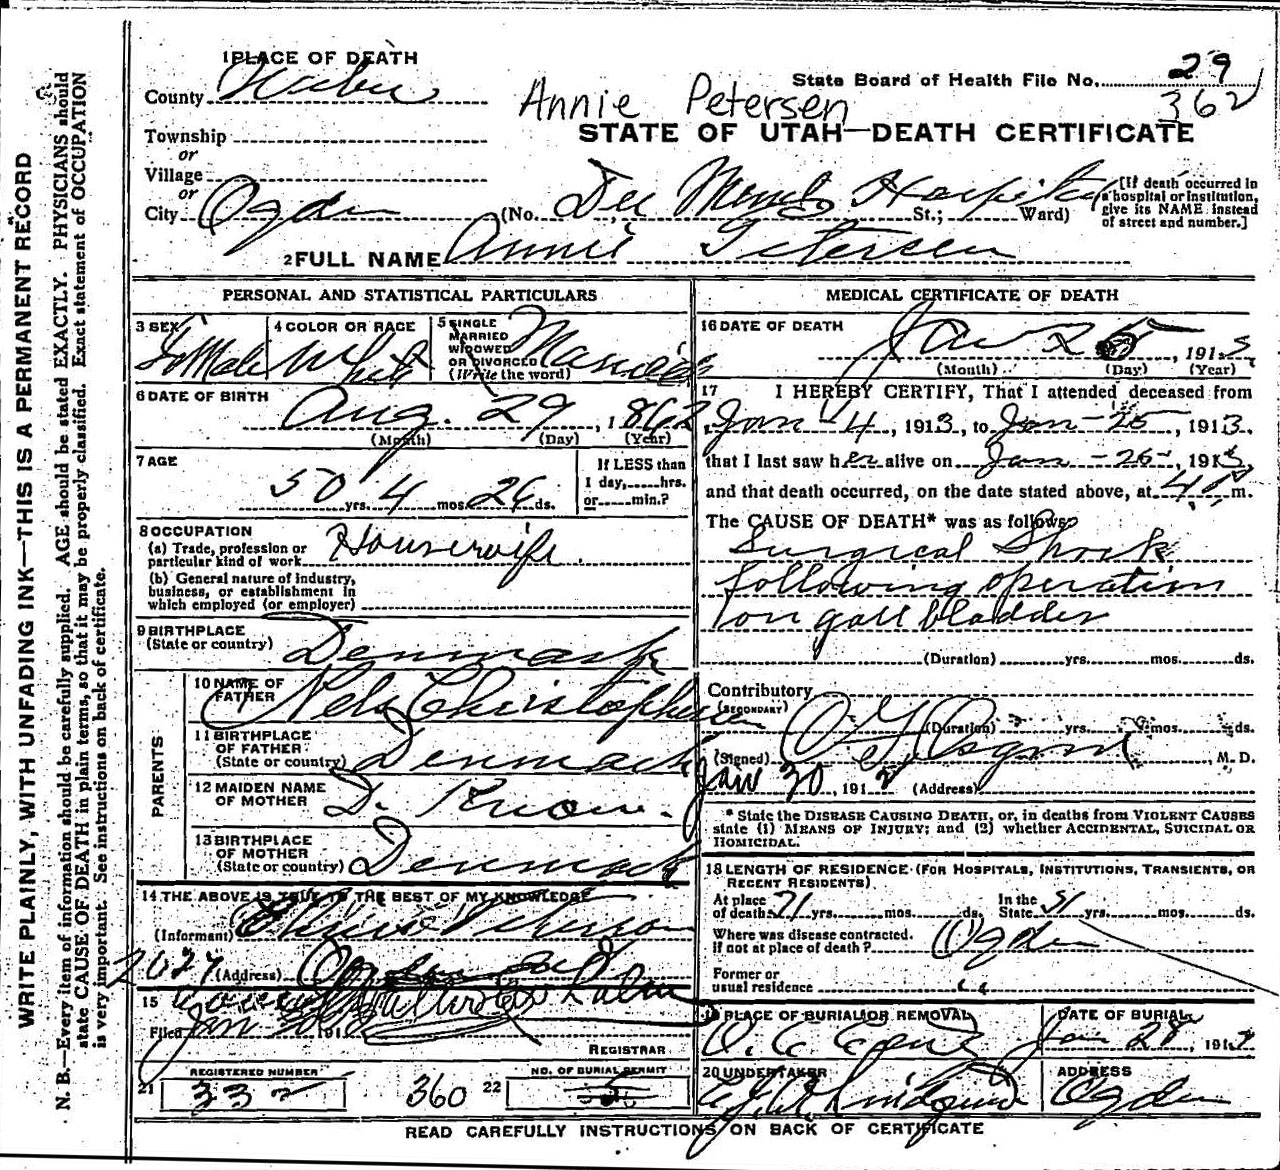 WRITE PLAINLY, WITH UNFADING INK—THIS IS A PERMANENT RECORD
N. B.—Every item of information should be carefully supplied. AGE should be stated EXACTLY. PHYSICIANS should
state CAUSE OF DEATH in plain terms, so that it may be properly classified. Exact statement of OCCUPATION
is very important. See instructions on back of certificate.
1 PLACE OF DEATH
State Board of Health File No. 29
362
County Weber
Annie Petersen
STATE OF UTAH—DEATH CERTIFICATE
Township
or
Village
or
City Ogden (No. Dee Hospital St.; Ward)
[If death occurred in
a hospital or institution,
give its NAME instead
of street and number.]
2 FULL NAME Annie Petersen
PERSONAL AND STATISTICAL PARTICULARS
3 SEX Female
4 COLOR OR RACE White
5 SINGLE
MARRIED
WIDOWED
OR DIVORCED
(Write the word) Married
6 DATE OF BIRTH
Aug. 29, 1862
(Month) (Day) (Year)
7 AGE
50 yrs. 4 mos. 26 ds.
If LESS than
1 day,.....hrs.
or.....min.?
8 OCCUPATION
(a) Trade, profession or
particular kind of work Housewife
(b) General nature of industry,
business, or establishment in
which employed (or employer)
9 BIRTHPLACE
(State or country) Denmark
PARENTS
10 NAME OF
FATHER Nels
11 BIRTHPLACE
OF FATHER
(State or country) Denmark
12 MAIDEN NAME
OF MOTHER D. Know.
13 BIRTHPLACE
OF MOTHER
(State or country) Denmark
14 THE ABOVE IS TRUE TO THE BEST OF MY KNOWLEDGE
(Informant)
(Address)
15
Filed Jan 191
REGISTRAR
21 REGISTERED NUMBER
332
360
22 NO. OF BURIAL PERMIT
MEDICAL CERTIFICATE OF DEATH
16 DATE OF DEATH
Jan 25, 1913
(Month) (Day) (Year)
17 I HEREBY CERTIFY, That I attended deceased from
Jan - 4, 1913, to Jan - 25, 1913,
that I last saw her alive on Jan - 25 -, 1913
and that death occurred, on the date stated above, at 4 P m.
The CAUSE OF DEATH* was as follows:
Surgical Shock
following operation
on gall bladder
(Duration) yrs. mos. ds.
Contributory
(SECONDARY)
(Duration) yrs. mos. ds.
(Signed) M. D.
Jan 30, 191 (Address)
* State the DISEASE CAUSING DEATH, or, in deaths from VIOLENT CAUSES
state (1) MEANS OF INJURY; and (2) whether ACCIDENTAL, SUICIDAL OR
HOMICIDAL.
18 LENGTH OF RESIDENCE (FOR HOSPITALS, INSTITUTIONS, TRANSIENTS, OR
RECENT RESIDENTS)
At place
of death yrs. mos. ds.
In the
State yrs. mos. ds.
Where was disease contracted,
if not at place of death? Ogden
Former or
usual residence
19 PLACE OF BURIAL OR REMOVAL
DATE OF BURIAL
Jan 28, 191
20 UNDERTAKER
ADDRESS
Ogden
READ CAREFULLY INSTRUCTIONS ON BACK OF CERTIFICATE